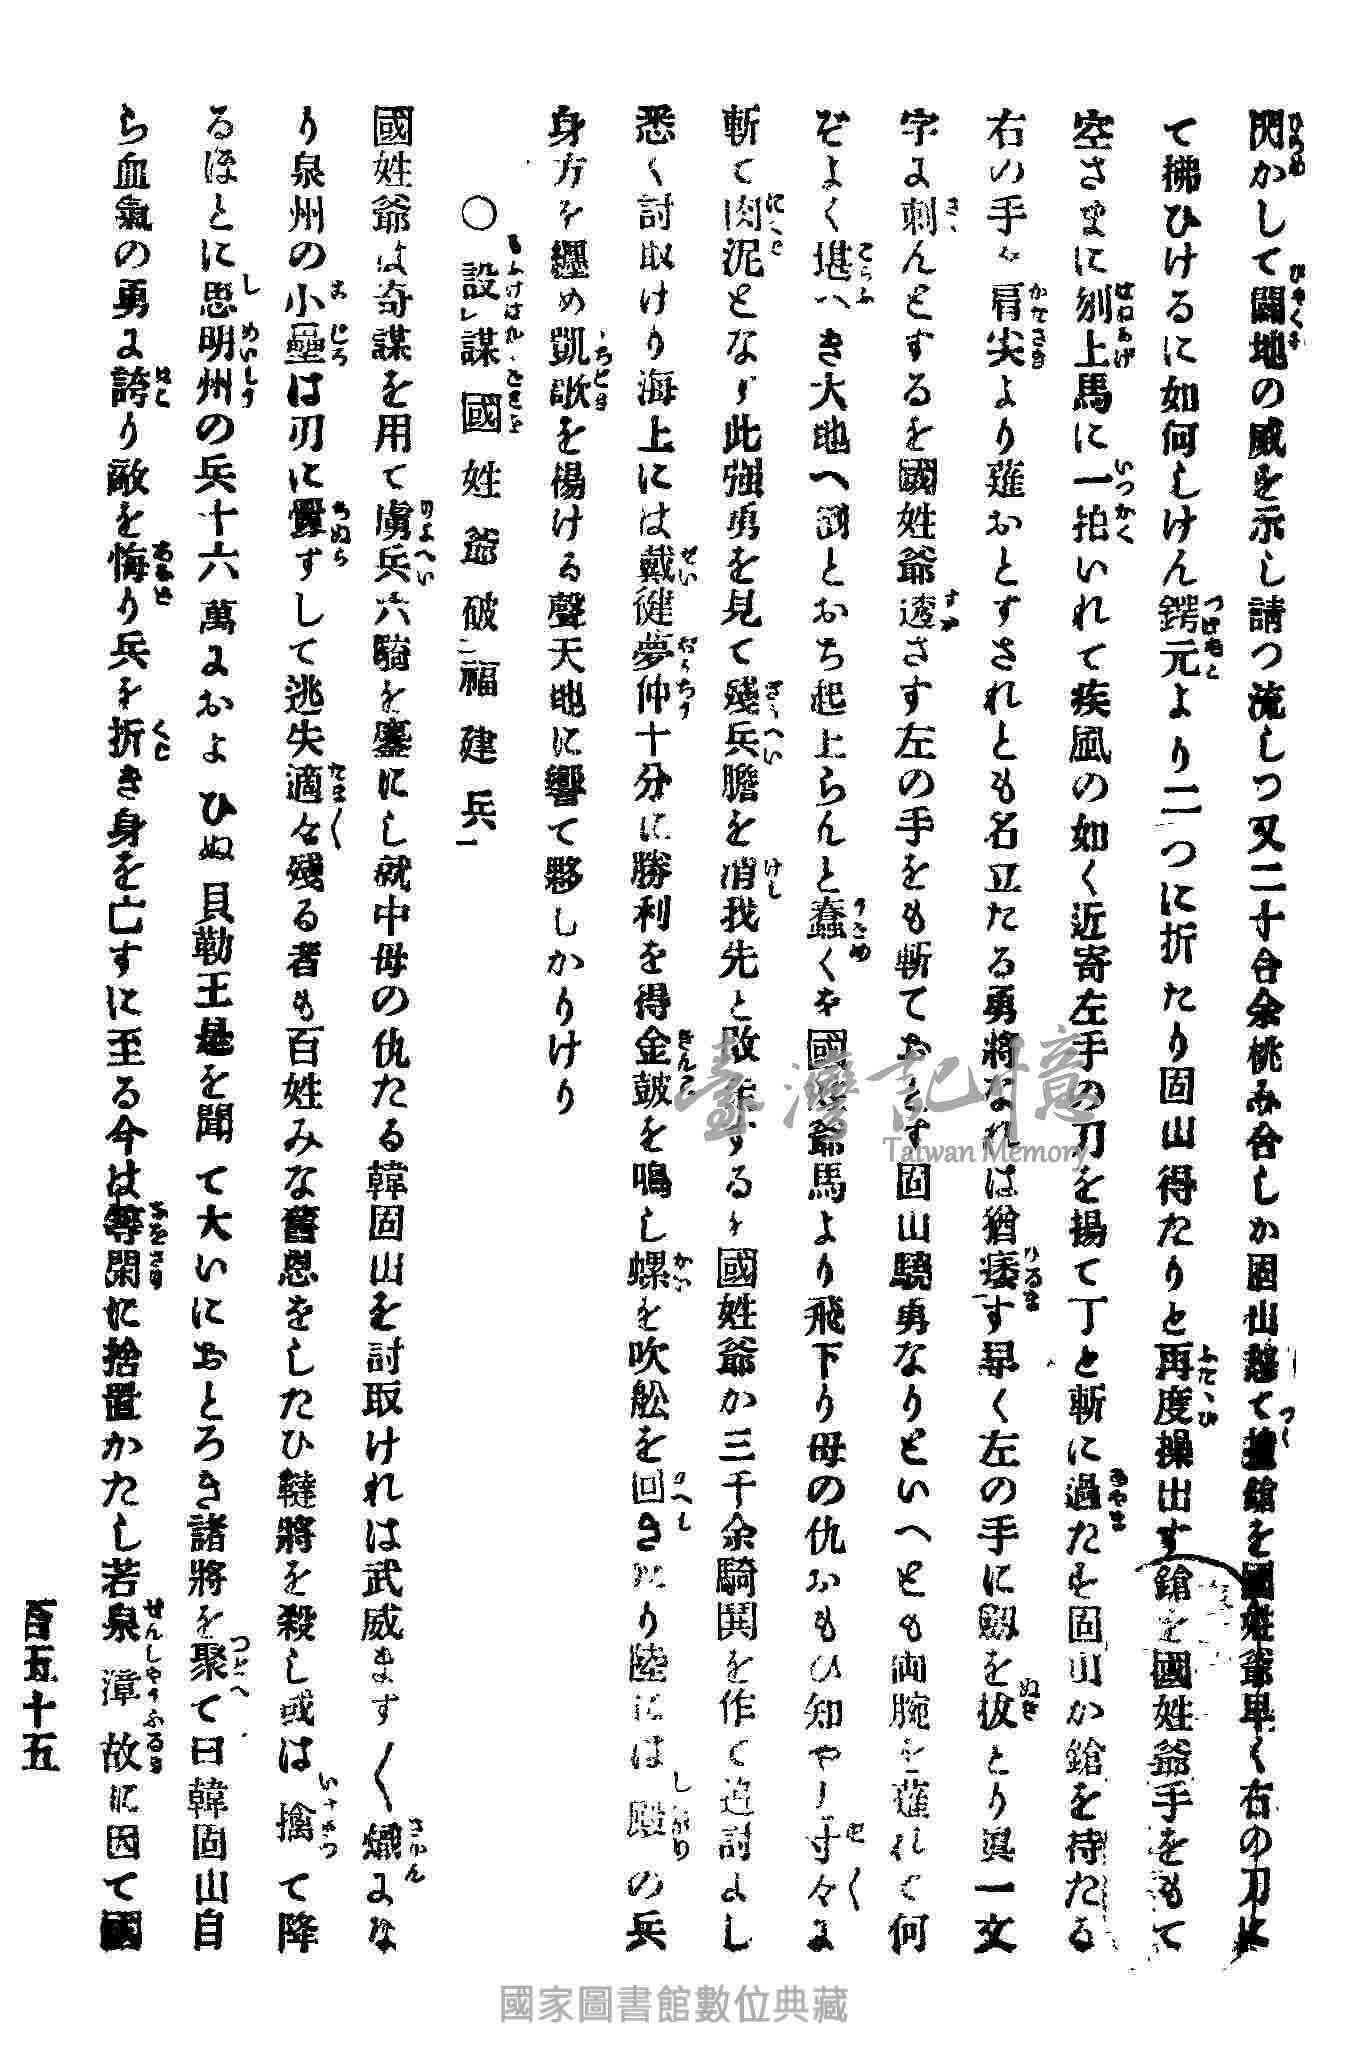 閃かして闘地の威を示し請つ流しつ又二十合余桃み合しか固山怒て鎗を國姓爺早く右の刀に
て拂ひけるに如何しけん鍔元より二つに折たり固山得たりと再度操出す鎗を國姓爺手をもて
空さまに刎上馬に一拍いれて疾風の如く近寄左手の刀を揚て丁と斬に過たす固山か鎗を持たる
右の手を肩尖より薙おとすされとも名立たる勇將なれは猶痿す早く左の手に劔を抜とり眞一文
字に刺んとするを國姓爺透さす左の手をも斬ておとす固山驍勇なりといへとも両腕を薙れて何
ぞよく堪へき大地へ𡉏とおち起上らんと蠢くを國姓爺馬より飛下り母の仇おもひ知やと寸々に
斬て肉泥となす此强勇を見て殘兵膽を消我先と敗走するを國姓爺か三千余騎鬨を作て追討よし
悉く討取けり海上には戴徤夢仲十分に勝利を得金皷を鳴し螺を吹舩を回きたり陸には殿の兵
身方を纒め凱歌を揚ける聲天地に響て夥しかりけり
〇設謀國姓爺破福建兵
國姓爺は奇謀を用て虜兵六騎を鏖にし就中母の仇たる韓固山を討取けれは武威ます〱熾にな
り泉州の小壘は刃に釁すして逃失適々殘る者も百姓みな舊恩をしたひ韃將を殺し或は擒て降
るほとに思明州の兵十六萬におよひぬ貝勒王是を聞て大いにおとろき諸將を聚て曰韓固山自
ら血氣の勇に誇り敵を侮り兵を折き身を亡すに至る今は等閑に捨置かたし若泉漳故に因て國
百五十五
臺灣記憶
Taiwan Memory
國家圖書館數位典藏